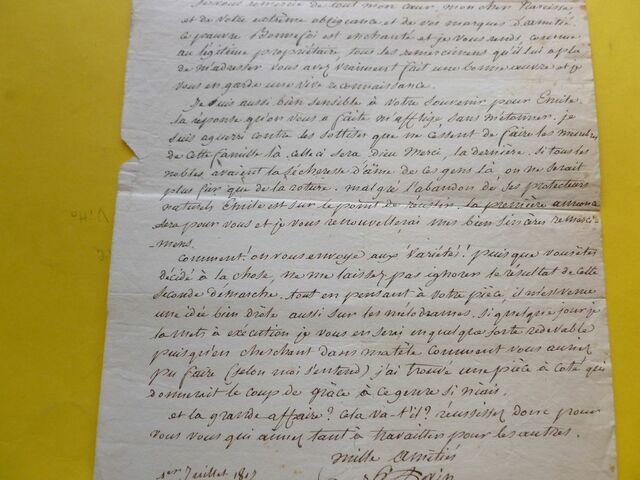 Je vous remercie de tout mon cœur, mon cher Narcisse,
et de votre extrême obligeance et de vos marques d'amitié.
ce pauvre Bonnefoi est enchanté et je vous rends, comme
au légitime propriétaire tous les remercimens qu'il a plu
de m'adresser vous avez vraiment fait une bonne œuvre et je
vous en garde une vive reconnaissance.
Je suis aussi bien sensible à votre souvenir pour Emile.
la réponse qu'on vous a faite m'afflige sans m'étonner. je
suis aguerri contre les sottises que ne cessent de faire les membres
de cette famille là. celle ci sera, Dieu merci, la dernière. si tous les
nobles avaient la sécheresse d'âme de ces gens là on ne serait
plus fier que de la roture. malgré l'abandon de ses protecteurs
naturels Emile est sur le point de réussir. la première annonce
sera pour vous et je vous renouvellerai mes bien sincères remerci-
mens.
Comment! on vous envoye aux Variétés! puisque vous êtes
décidé à la chose, ne me laissez pas ignorer le resultat de cette
seconde démarche. tout en pensant à votre pièce, il m'est venu
une idée bien drole aussi sur les mélodrames. si quelque jour je
la mets à exécution je vous en serai en quelque sorte redevable
puisqu'en cherchant dans ma tête comment vous auriez
pu faire (selon moi s'entend) j'ai trouvé une pièce à coté qui
donnerait le coup de grâce à ce genre si niais.
et la grande affaire? Cela va-t'il? réussissez donc pour
vous vous qui aimez tant à travailler pour les autres.
mille amitiés
1er Juillet 1817